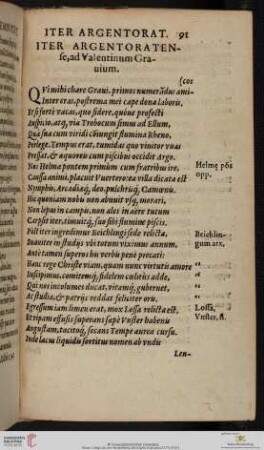 ITER ARGENTORAT. 91
ITER ARGENTORATEN-
se, ad Valentinum Gra-
uium.
(cos
QVi mihi chare Graui primos numerādus ami-
Inter eras, postrema mei cape dona laboris,
Et si forte vacas, quo sidere, quoúe profecti
Auspicio, atq́; via Trebocum simus ad
Qua sua cum viridi cōiungit flumina Rheno,
Perlege. Tempus erat, tumidas quo vinitor vuas
Pressat, & aequoreis cum piscibus occidit Argo.
Nos Helmæ pontem primùm cum fratribus ire,
Causa animi, placuit nea villa dicata est
Nymphis, Arcadiaq́;, deo, pulchrisq́; Camœnis.
Huc quoniam nobis non abnuit vsq́; morari,
Non lepus in campis, non ales in aere tutum
Carpsit iter, timuitq́; suo sibi flumine piscis.
Pòst iter ingredimur Reichlingi sede relicta.
Suauiter in studijs vbi totum viximus annum.
Ante tamen superos his verbis penè precati:
Hanc rege Christe viam, quam nunc virtutis amore
Suscipimus, comitemq́; fidelem cœlitus adde,
Qui nos incolumes ducat, vitamq́; gubernet,
Ac studijs, & patrijs reddat feliciter oris.
Egressum iam limen erat, mox Lossa relicta est,
Et ripam effusis superans sæpè Vnster habenis
Angustam, tacitoq́; secans Tempe aurea cursu.
Inde lacus liquidi sortitus nomen ab vndis
Len-
Helmę pōs
opp.
Reichlin-
gum arx.
“
“
“
“
Lossa,
Vnster, fl.